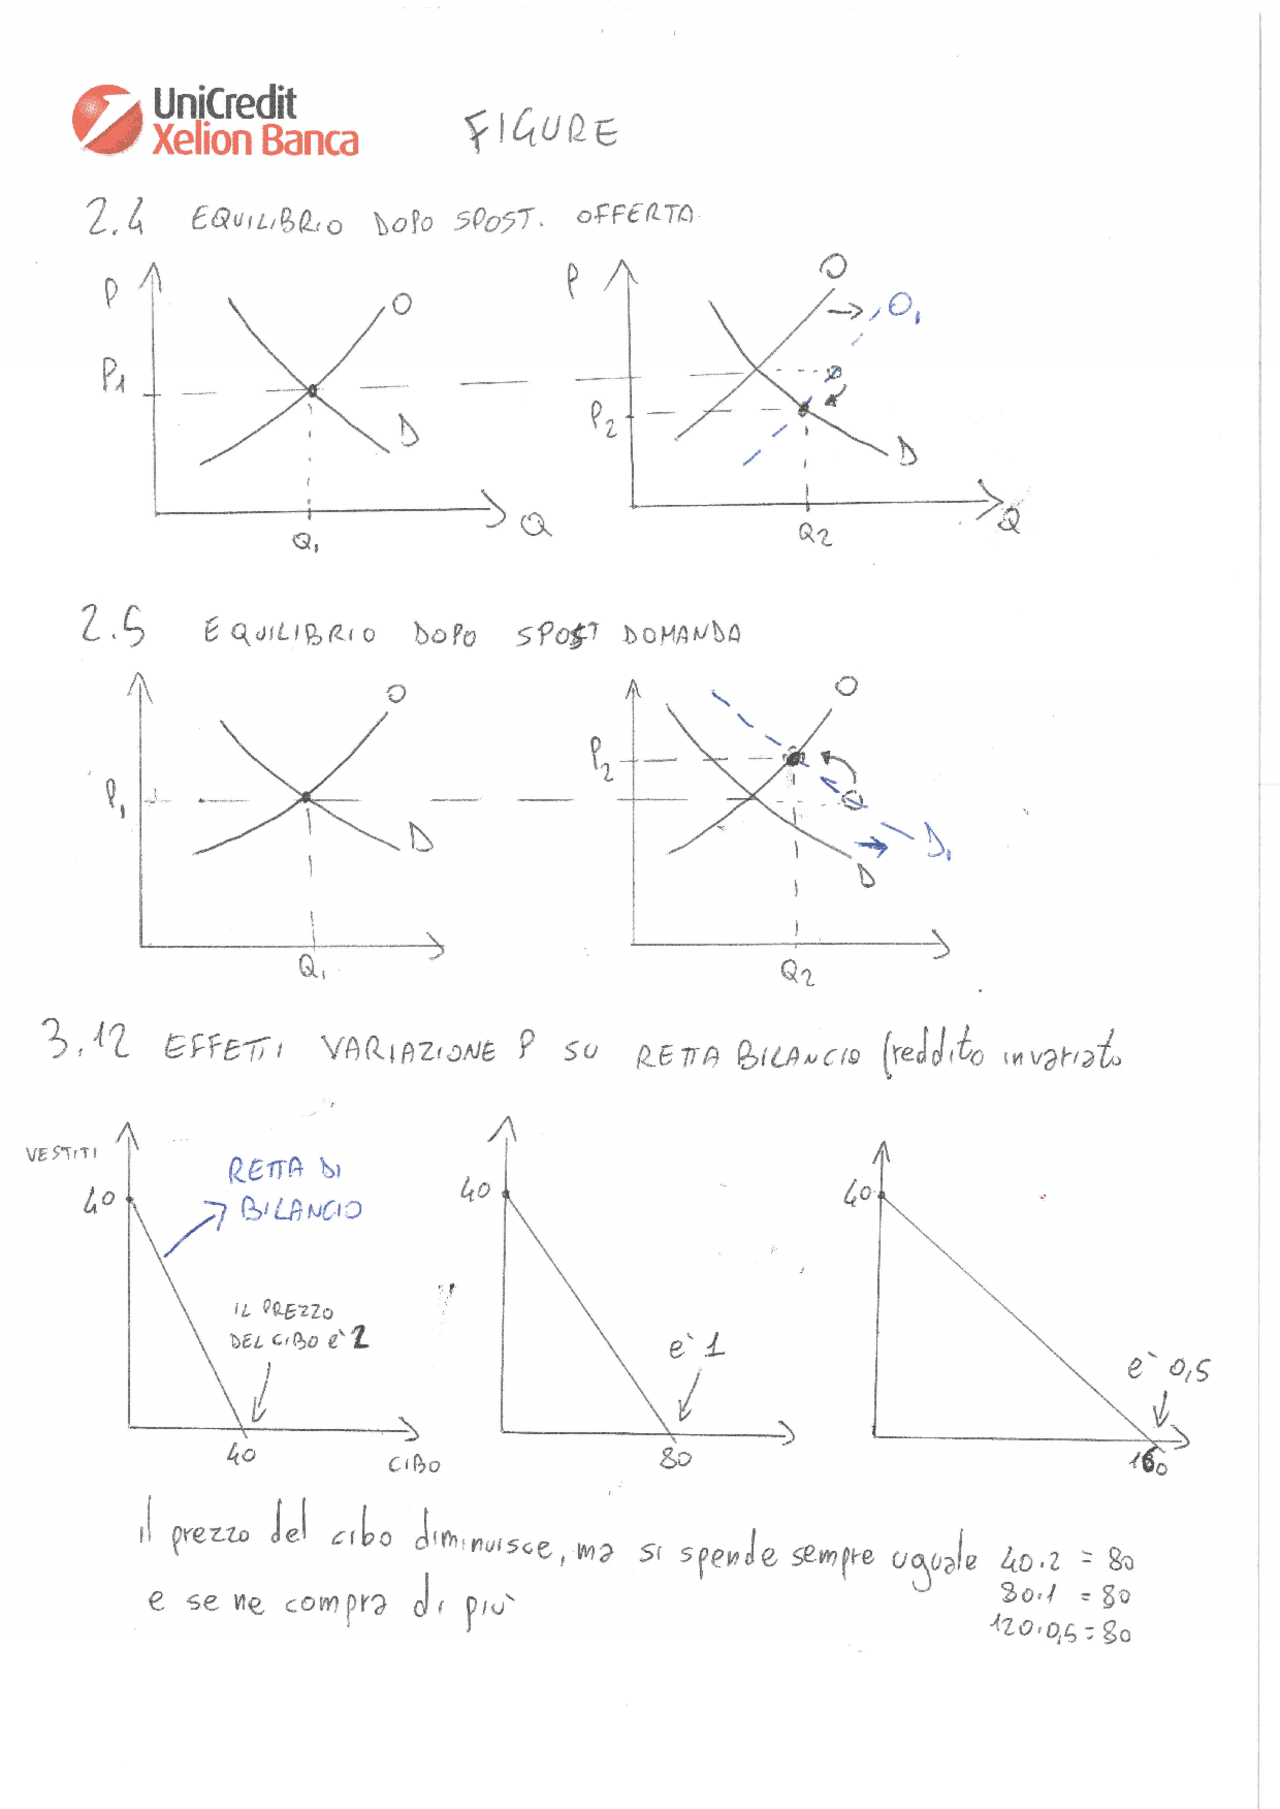 UniCredit
Xelion Banca
FIGURE
2.4 EQUILIBRIO DOPO SPOST. OFFERTA
P
O
P1
D
Q1
Q
P
O
O1
P2
D
Q2
Q
2.5 EQUILIBRIO DOPO SPOST DOMANDA
O
P1
D
Q1
O
P2
D1
D
Q2
3.12 EFFETTI VARIAZIONE P SU RETTA BILANCIO (reddito invariato
VESTITI
40
RETTA DI
BILANCIO
IL PREZZO
DEL CIBO è 2
40
CIBO
40
è 1
80
40
è 0,5
160
il prezzo del cibo diminuisce, ma si spende sempre uguale 40.2 = 80
e se ne compra di più
80.1 = 80
120.0,5=80